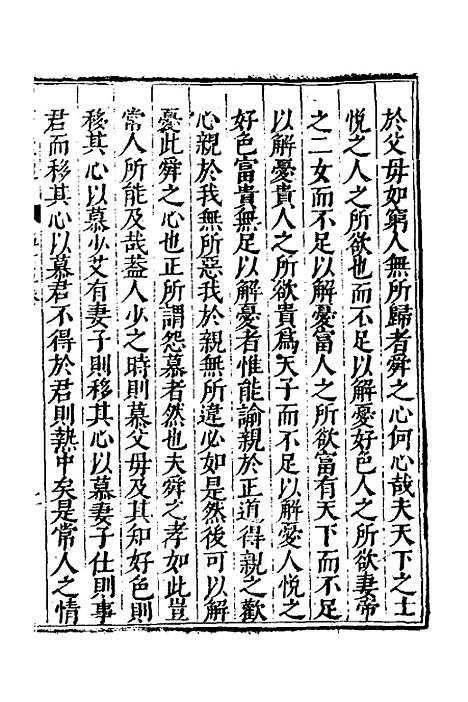 於父母如窮人無所歸者舜之心何心哉夫天下之士
悅之人之所欲也而不足以解憂好色人之所欲妻帝
之二女而不足以解憂富人之所欲富有天下而不足
以解憂貴人之所欲貴爲天子而不足以解憂人悅之
好色富貴無足以解憂者惟能諭親於正道得親之歡
心親於我無所惡我於親無所違必如是然後可以解
憂此舜之心也正所謂怨慕者然也夫舜之孝如此豈
常人所能及哉葢人少之時則慕父母及其知好色則
移其心以慕少艾有妻子則移其心以慕妻子仕則事
君而移其心以慕君不得於君則熱中矣是常人之情